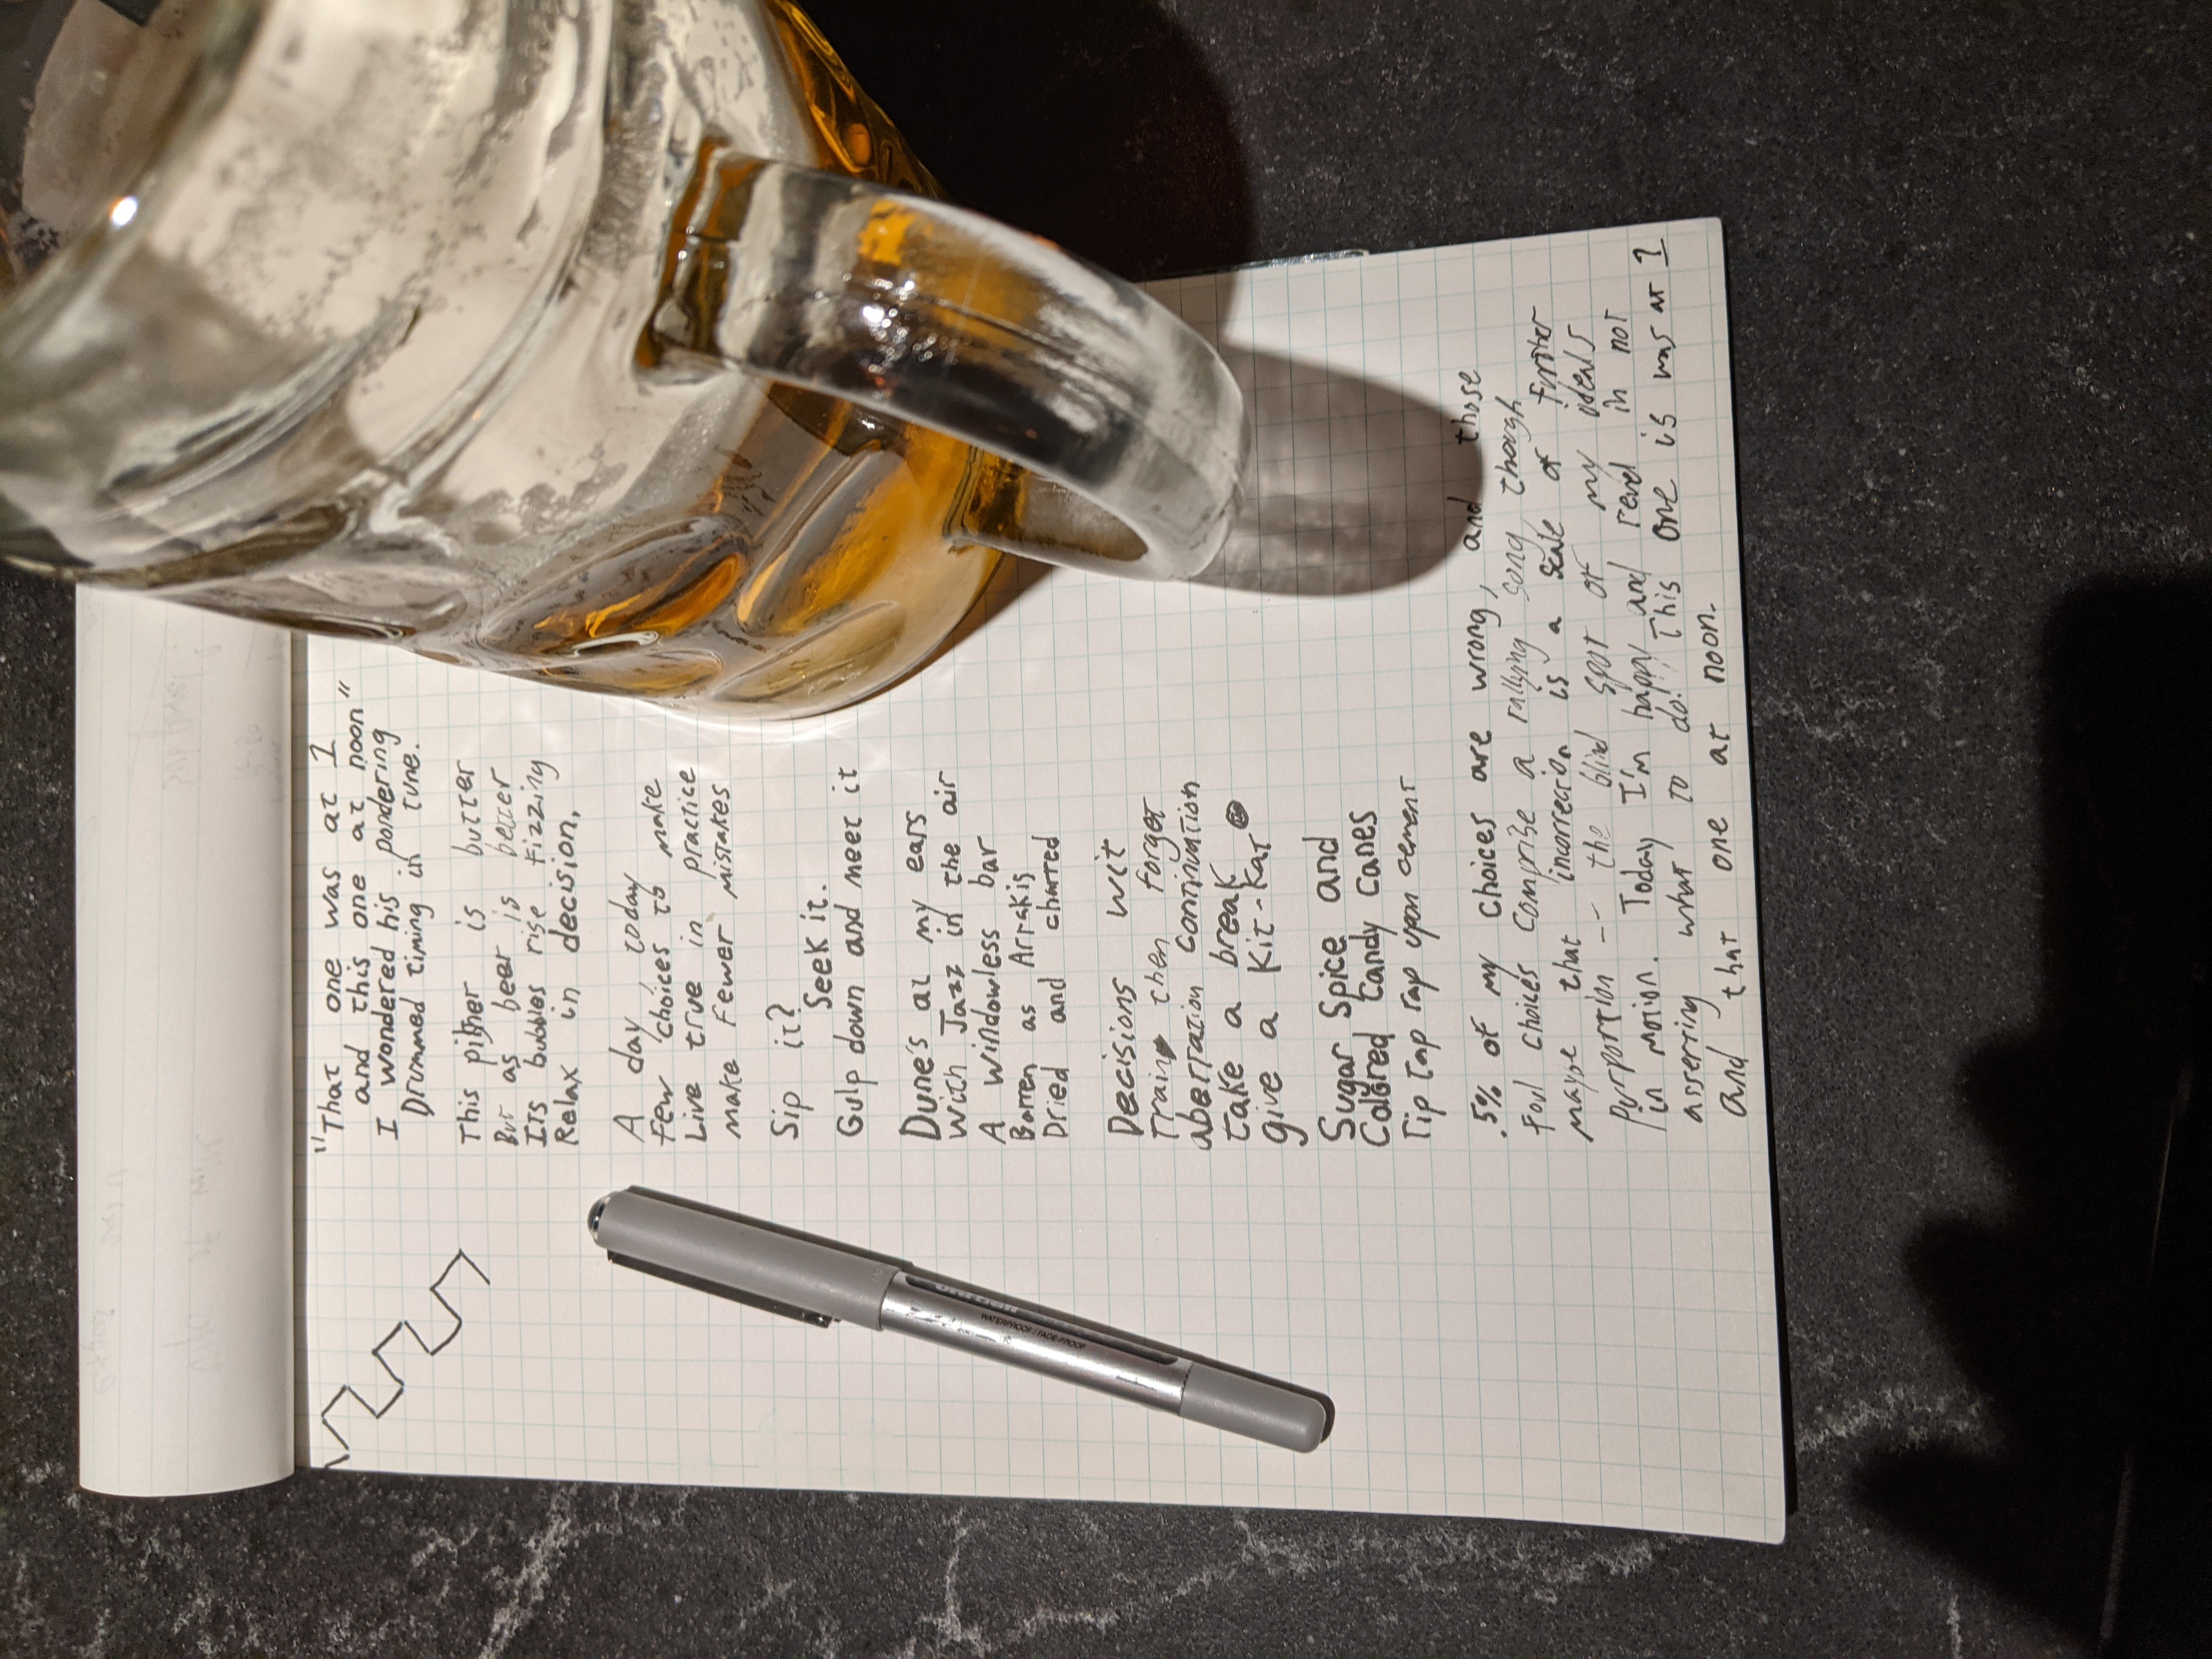 "That one was at 1
and this one at noon"
I wondered his pondering
Drummed timing in tune.
This pither is butter
But as beer is better
Its bubbles rise fizzing
Relax in decision.
A day, today
few choices to make
Live true in practice
make fewer mistakes
Sip it?
Seek it.
Gulp down and meet it
Dune's at my ears
with Jazz in the air
A windowless bar
Barren as Arrakis
Dried and charred
Decisions wit
Train then forget
aberration continuation
take a break
give a Kit-Kat
Sugar Spice and
Colored Candy Canes
Tip tap rap upon cement
.5% of my choices are wrong, and those
foul choices comprise a rallying song though
maybe that incorrection is a scale of further
purportion -- the blind spot of my ideals
in motion. Today I'm happy and revel in not
asserting what to do! This one is was at 1
and that one at noon.
WATERPROOF / FADE-PROOF